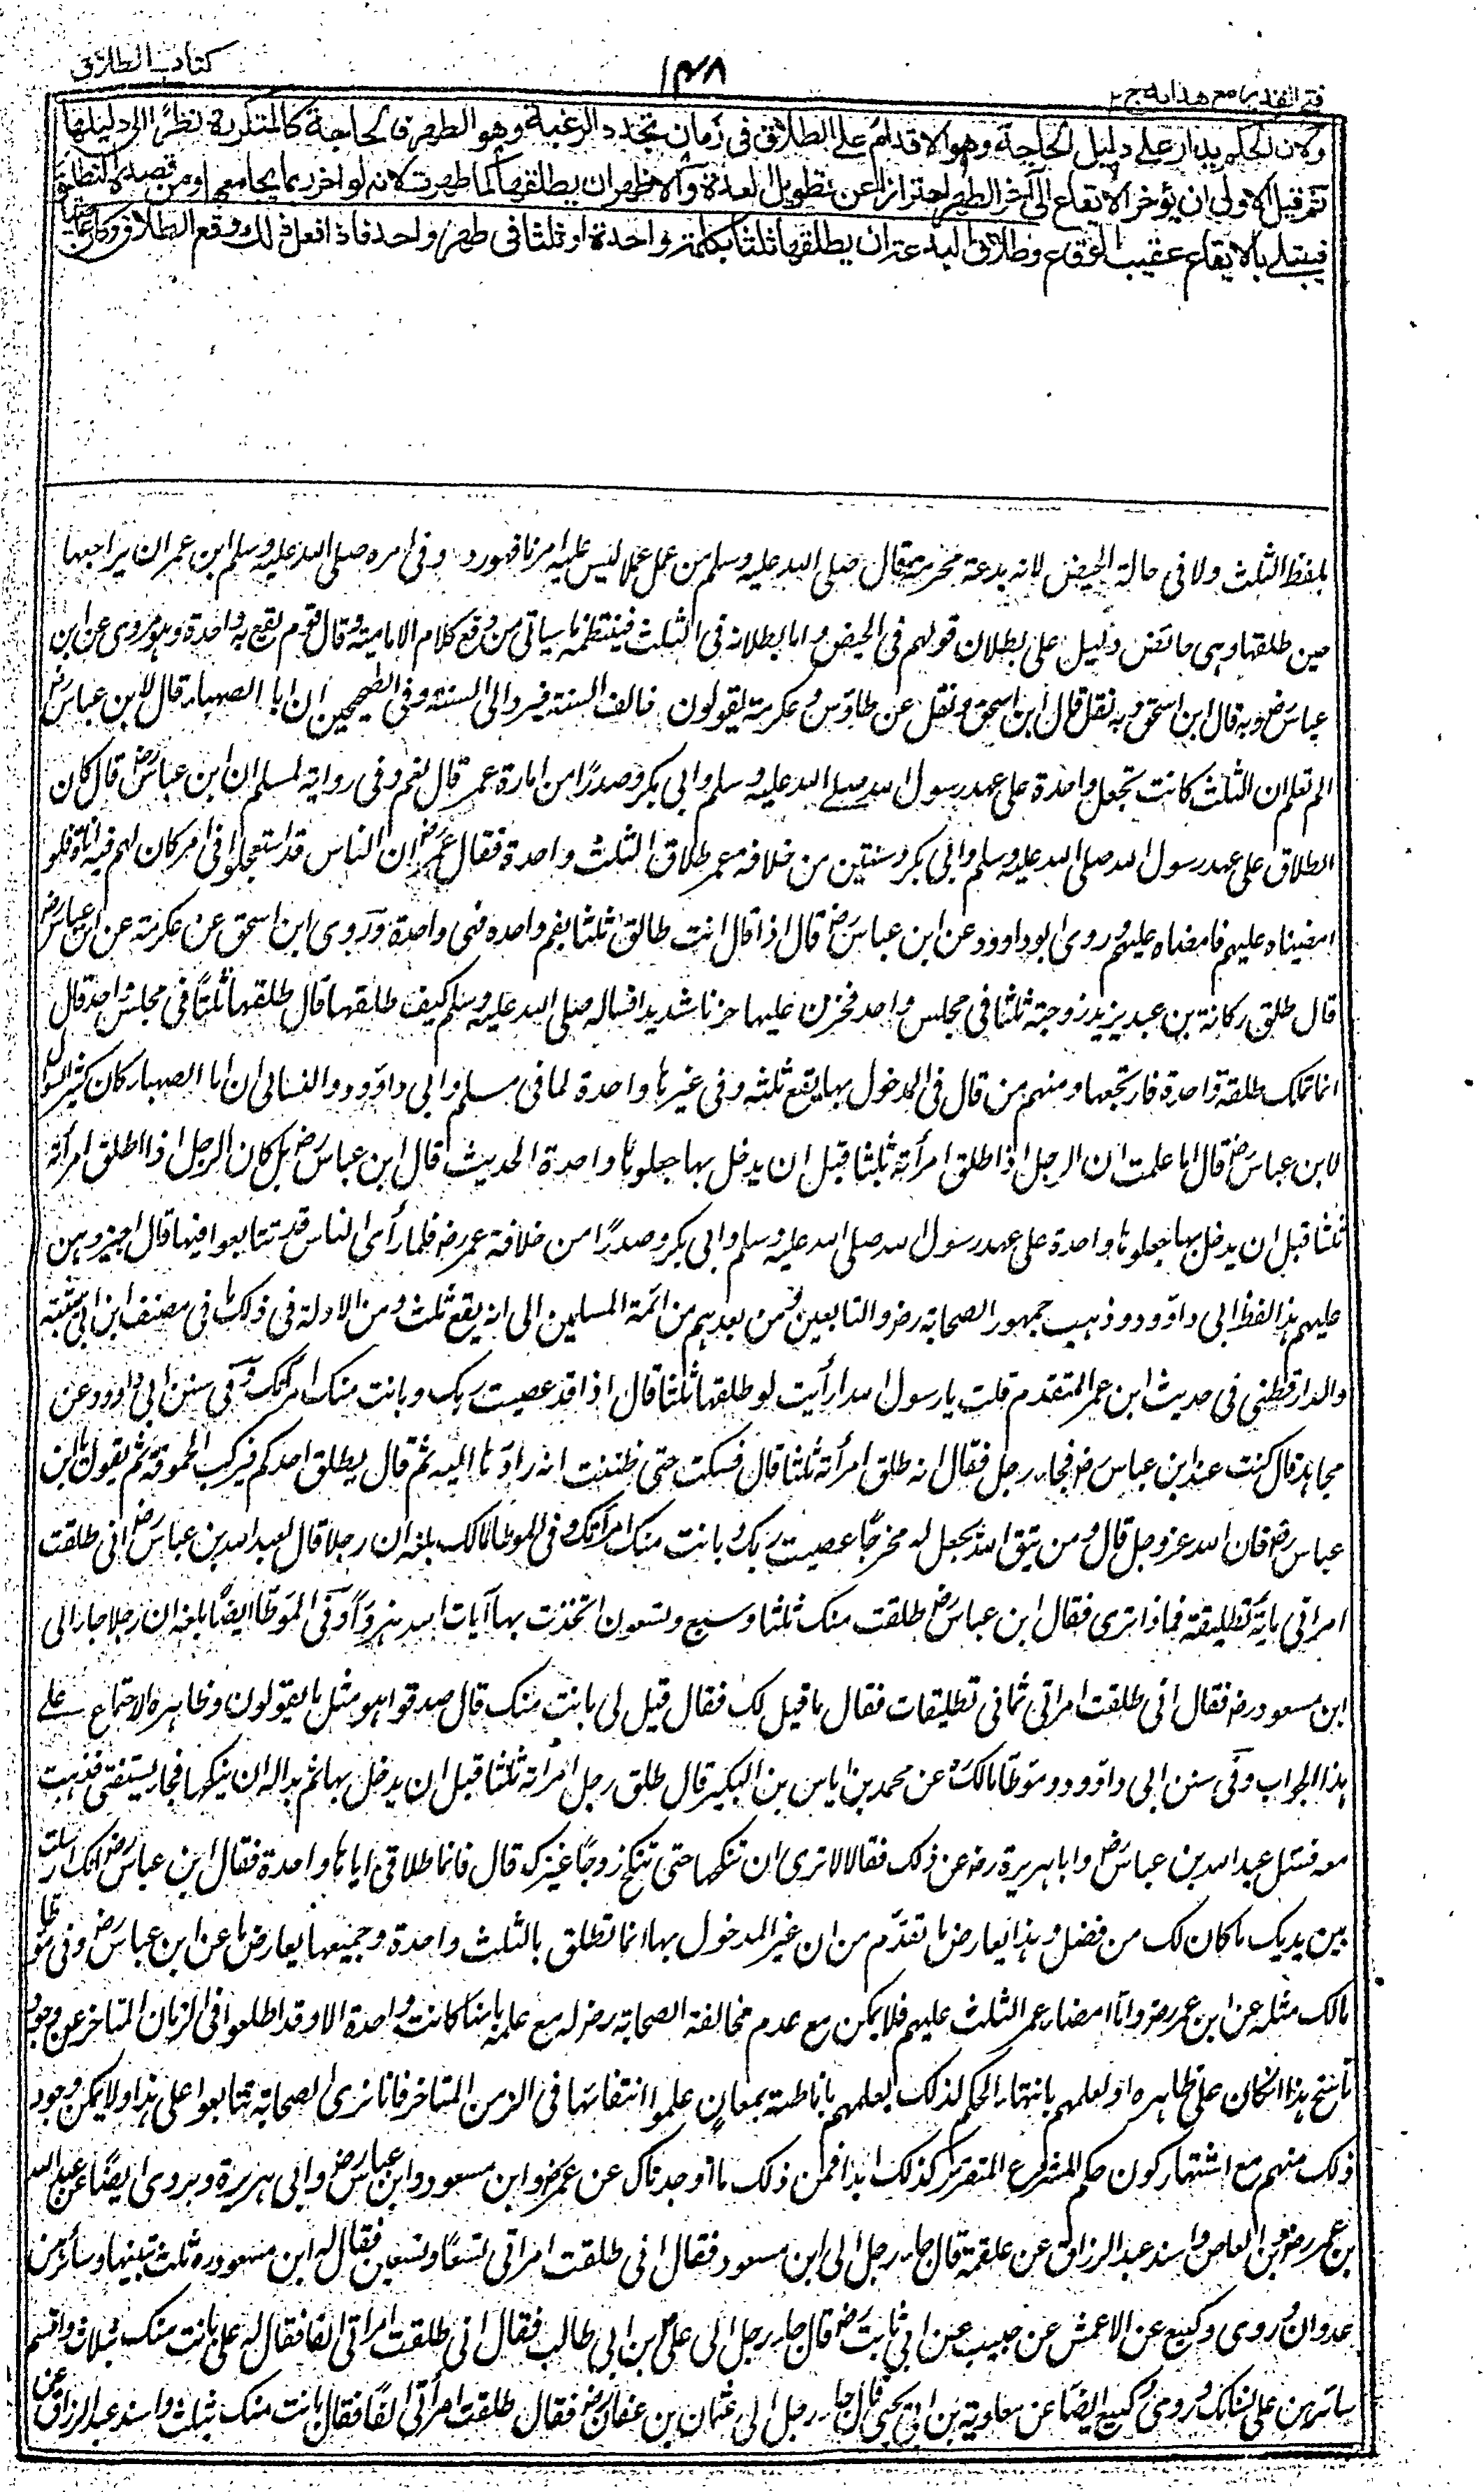 فتح القدير مع هداية ج ٢
١٤٨
كتاب الطلاق
ولان الحكم يدار على دليل الحاجة وهو الاقدام على الطلاق في زمان تجدد الرغبة وهو الطهر فالحاجة كالمتكررة نظرًا الى دليلها
ثم قيل الاولى ان يؤخر الايقاع الى آخر الطهر احترازا عن تطويل العدة والاظهر ان يطلقها كما طهرت لانه لو اخر ربما يجامعها ومن قصده التطليق
فيبتلى بالايقاع عقيب الوقاع وطلاق البدعة ان يطلقها ثلثا بكلمة واحدة او ثلثا في طهر واحد فاذا فعل ذلك وقع الطلاق وكان عاصيًا
بلفظ الثلث ولا في حالة الحيض لانه بدعة محرمة وقال صلى الله عليه وسلم من عمل عملا ليس عليه امرنا فهو رد وفي امره صلى الله عليه وسلم ابن عمر ان يراجعها
حين طلقها وهي حائض دليل على بطلان قولهم في الحيض واما بطلانه في الثلث فينتظمه ما سياتي من دفع كلام الامامية وقال قوم يقع به واحدة وهو مروي عن ابن
عباس رض وبه قال ابن اسحق وبه نقل قال ابن اسحق ونقل عن طاؤس وعكرمة يقولون خالف السنة فيرد الى السنة وفي الصحيحين ان ابا الصهباء قال لابن عباس رض
الم تعلم ان الثلث كانت تجعل واحدة على عهد رسول الله صلى الله عليه وسلم وابي بكر وصدرًا من امارة عمر قال نعم وفي رواية لمسلم ان ابن عباس رض قال كان
الطلاق على عهد رسول الله صلى الله عليه وسلم وابي بكر وسنتين من خلافة عمر طلاق الثلث واحدة فقال عمر رض ان الناس قد استعجلوا في امر كان لهم فيه اناة فلو
امضيناه عليهم فامضاه عليهم وروى ابو داوود عن ابن عباس رض قال اذا قال انت طالق ثلثا بفم واحدة فهي واحدة وروى ابن اسحق عن عكرمة عن ابن عباس رض
قال طلق ركانة بن عبد يزيد زوجته ثلثا في مجلس واحد فحزن عليها حزنا شديدا فساله صلى الله عليه وسلم كيف طلقتها قال طلقتها ثلثًا في مجلس واحد قال
انما تلك طلقة واحدة فارتجعها ومنهم من قال في المدخول بها يقع ثلثة وفي غيرها واحدة لما في مسلم وابي داوود والنسائي ان ابا الصهباء كان كثير السؤال
لابن عباس رض قال اما علمت ان الرجل اذا طلق امرأته ثلثا قبل ان يدخل بها جعلوها واحدة الحديث قال ابن عباس رض بل كان الرجل اذا اطلق امرأته
ثلثا قبل ان يدخل بها جعلوها واحدة على عهد رسول الله صلى الله عليه وسلم وابي بكر وصدرًا من خلافة عمر رض فلما رأى الناس قد تتابعوا فيها قال اجيزوهن
عليهم هذا لفظ ابي داوود وذهب جمهور الصحابة رض والتابعين ومن بعدهم من ائمة المسلمين الى انه يقع ثلث ومن الادلة في ذلك ما في مصنف ابن ابي شيبة
والدارقطني في حديث ابن عمر المتقدم قلت يا رسول الله ارأيت لو طلقتها ثلثا قال اذا قد عصيت ربك وبانت منك امرأتك وفي سنن ابي داوود عن
مجاهد قال كنت عند ابن عباس رض فجاء رجل فقال انه طلق امرأته ثلثا قال فسكت حتى ظننت انه رادها اليه ثم قال يطلق احدكم فيركب الحموقة ثم يقول يا ابن
عباس رض فان الله عز وجل قال ومن يتق الله يجعل له مخرجًا عصيت ربك وبانت منك امرأتك وفي الموطا مالك بلغه ان رجلا قال لعبد الله بن عباس رض اني طلقت
امراتي مائة تطليقة فماذا ترى فقال ابن عباس رض طلقت منك ثلثا وسبع وتسعون اتخذت بها آيات الله هزوًا وفي الموطا ايضًا بلغه ان رجلا جاء الى
ابن مسعود رض فقال اني طلقت امراتي ثماني تطليقات فقال ما قيل لك فقال قيل لي بانت منك قال صدقوا هو مثل ما يقولون وظاهره الاجماع على
هذا الجواب وفي سنن ابي داوود وموطا مالك عن محمد بن اياس بن البكير قال طلق رجل امرأته ثلثا قبل ان يدخل بها ثم بدا له ان ينكحها فجاء يستفتي فذهبت
معه فسئل عبد الله بن عباس رض وابا هريرة رض عن ذلك فقالا لا نرى ان تنكحها حتى تنكح زوجًا غيرك قال فانما طلاقي اياها واحدة فقال ابن عباس رض انك ارسلت
من يديك ما كان لك من فضل وهذا يعارض ما تقدم من ان غير المدخول بها انما تطلق بالثلث واحدة وجميعها يعارض ما عن ابن عباس رض وفي موطا
مالك مثله عن ابن عمر رض واما امضاء عمر الثلث عليهم فلا يمكن مع عدم مخالفة الصحابة رض له مع علمه بانها كانت واحدة الا وقد اطلعوا في الزمان المتاخر عن وجود
ناسخ هذا ان كان على ظاهره او لعلمهم بانتهاء الحكم لذلك لعلمهم باناطته بمعان علموا انتفائها في الزمن المتاخر فانا نرى الصحابة تتابعوا على هذا ولا يمكن وجود
ذلك منهم مع اشتهار كون حكم الشرع المتقرر كذلك ابدا فمن ذلك ما اوجدناك عن عمر رض وابن مسعود وابن عباس رض وابي هريرة وروى ايضًا عن عبد الله
بن عمرو رض بن العاص واسند عبد الرزاق عن علقمة قال جاء رجل الى ابن مسعود فقال اني طلقت امراتي تسعًا وتسعين فقال له ابن مسعود رض ثلث تبينها وسائرهن
عدوان وروى وكيع عن الاعمش عن حبيب عن ابي ثابت رض قال جاء رجل الى علي بن ابي طالب فقال اني طلقت امراتي الفا فقال له علي بانت منك بثلاث واقسم
سائرهن على نسائك وروى وكيع ايضًا عن معاوية بن ابي يحيى قال جاء رجل الى عثمان بن عفان رض فقال طلقت امرأتي الفًا فقال بانت منك بثلث واسند عبد الرزاق عن